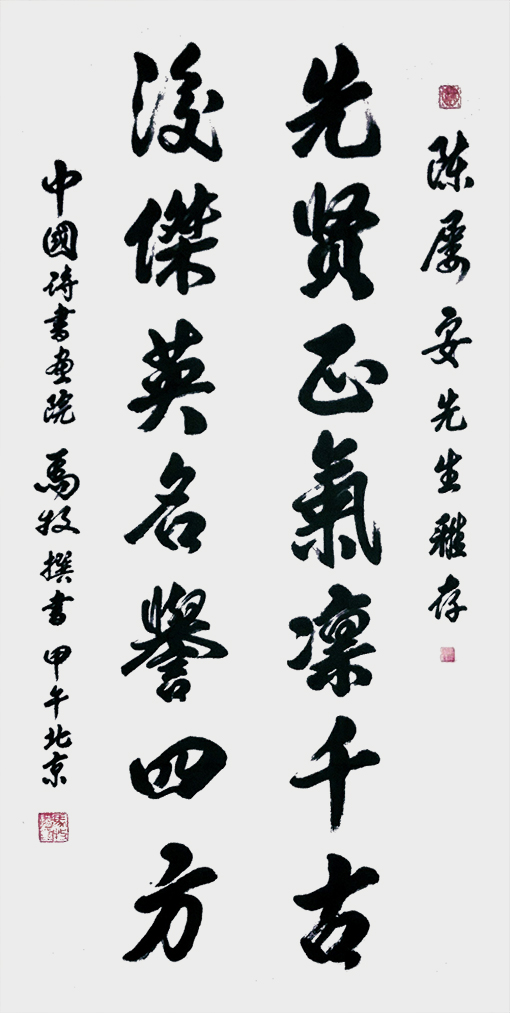 陈屡安先生雅存
先贤正氣凛千古
後傑英名譽四方
中國詩書畫院 馬牧撰書 甲午北京